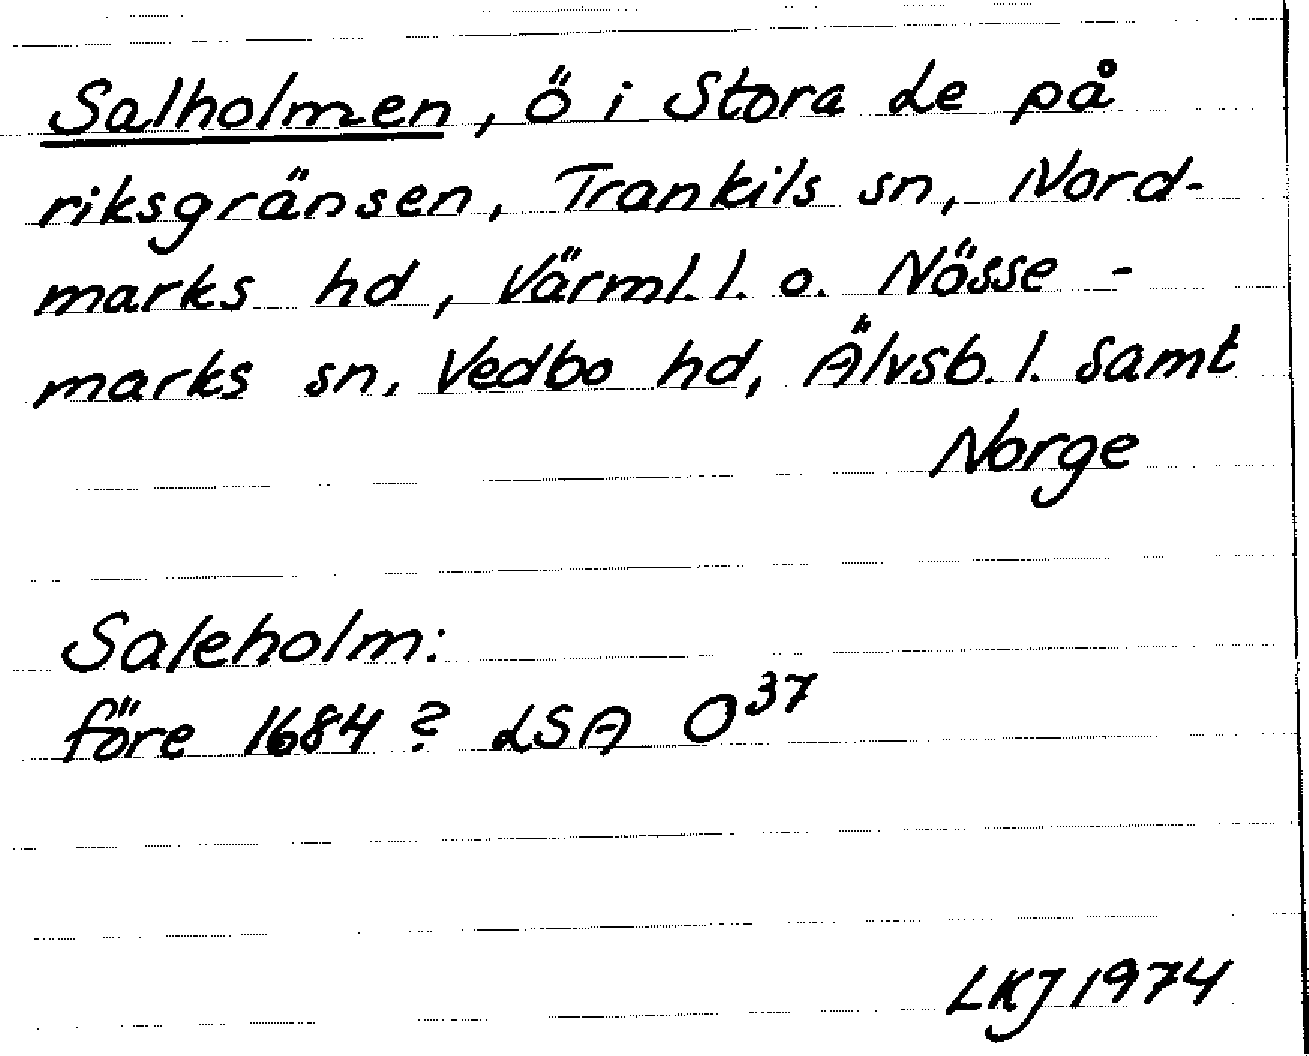 Salholmen, ö i Stora Le på
riksgränsen, Trankils sn, Nord-
marks hd, Värml. l. o. Nösse-
marks sn, Vedbo hd, Älvsb. l. samt
Norge
Saleholm:
före 1684? LSA O³⁷
LKJ 1974